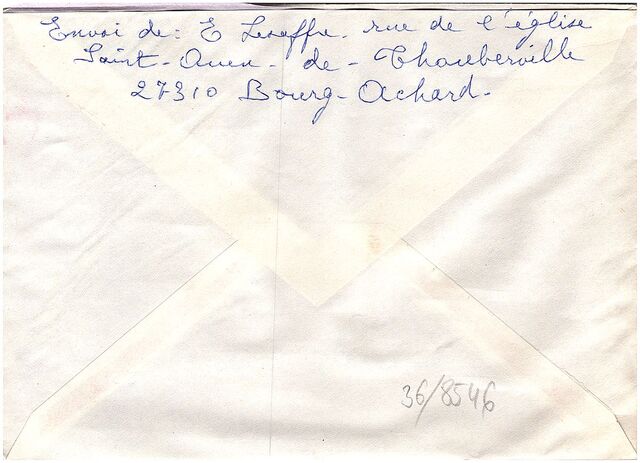 Envoi de: E Lesaffre. rue de l'église
Saint-Ouen-de-Thouberville
27310 Bourg-Achard.
36/8546